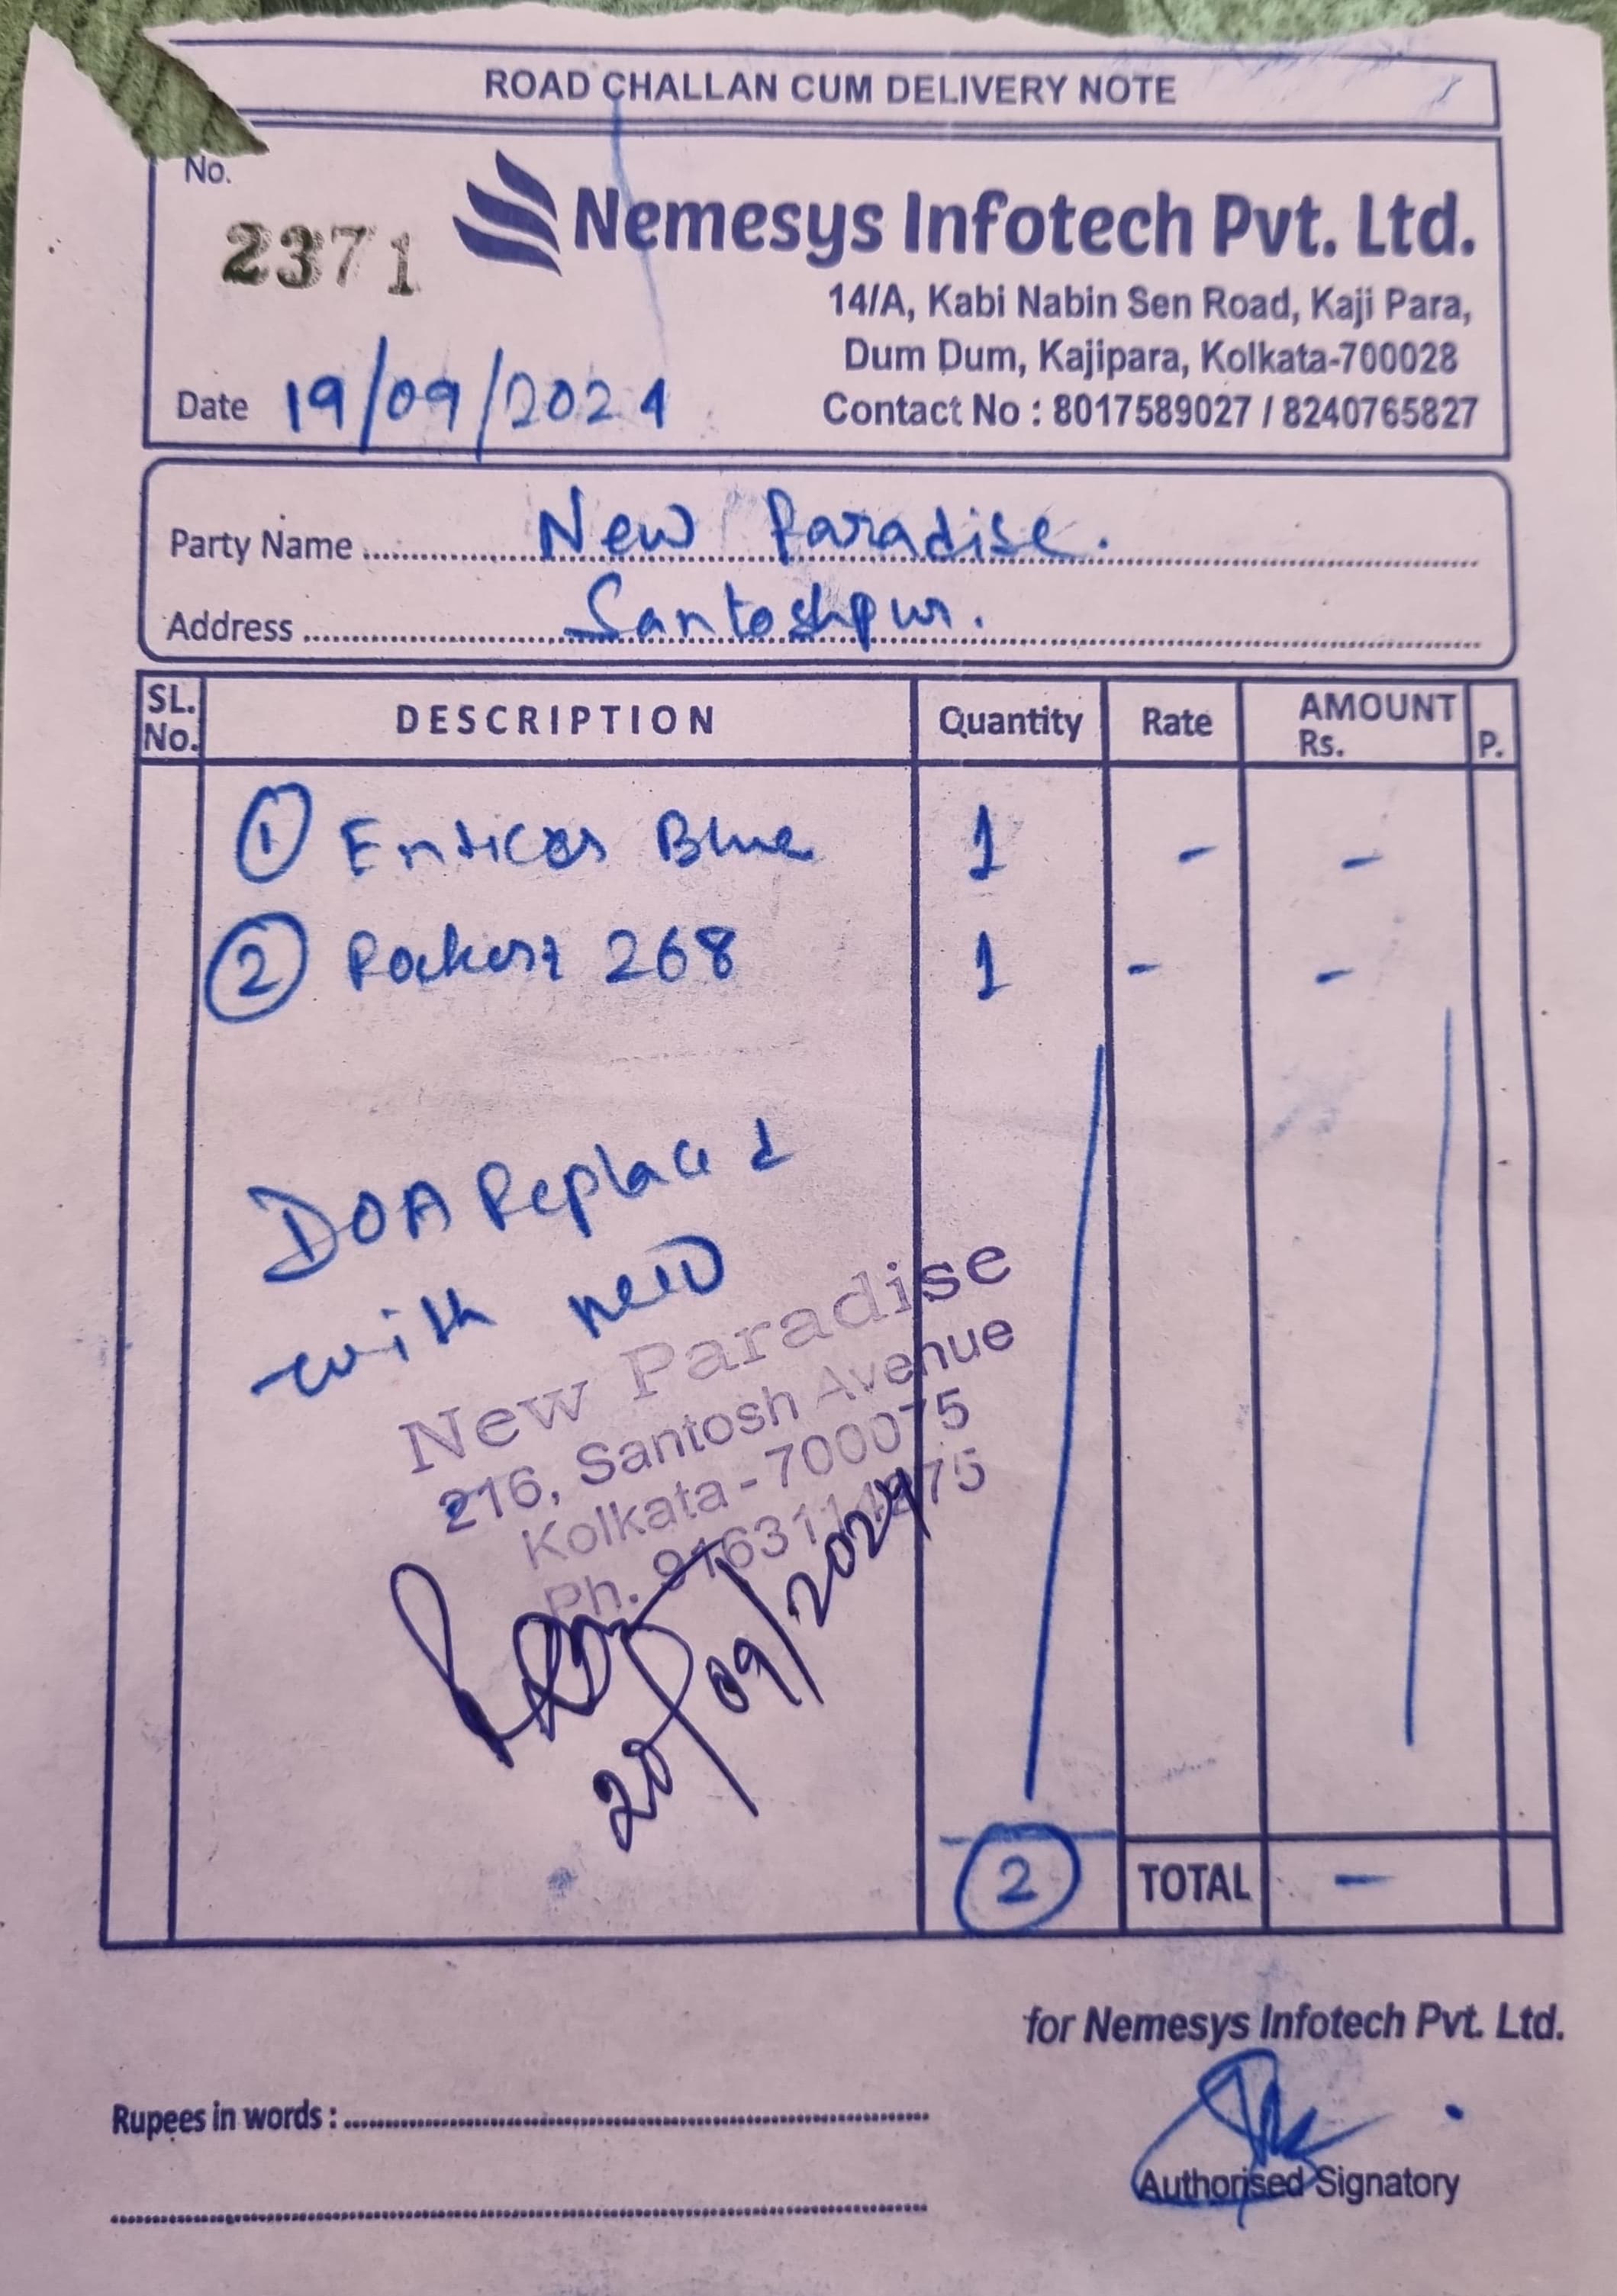 ROAD CHALLAN CUM DELIVERY NOTE
No.
2371
Nemesys Infotech Pvt. Ltd.
14/A, Kabi Nabin Sen Road, Kaji Para,
Dum Dum, Kajipara, Kolkata-700028
Contact No : 8017589027 / 8240765827
Date 19/09/2024
Party Name New Paradise.
Address Santoshpur.
SL. No. DESCRIPTION Quantity Rate AMOUNT Rs. P.
1 Enticer Blue 1 - -
2 268 1 - -
DOA Replaced
with new
New Paradise
216, Santosh Avenue
Kolkata - 700075
Ph.
20/09/2024
2 TOTAL -
for Nemesys Infotech Pvt. Ltd.
Rupees in words :
Authorised Signatory